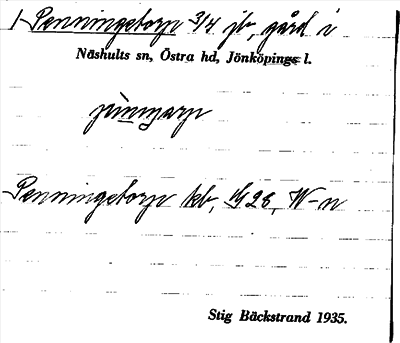 Penningetorp 3/4 jb, gård i
Näshults sn, Östra hd, Jönköpings l.
Penningetorp kb, W-n
Stig Bäckstrand 1935.